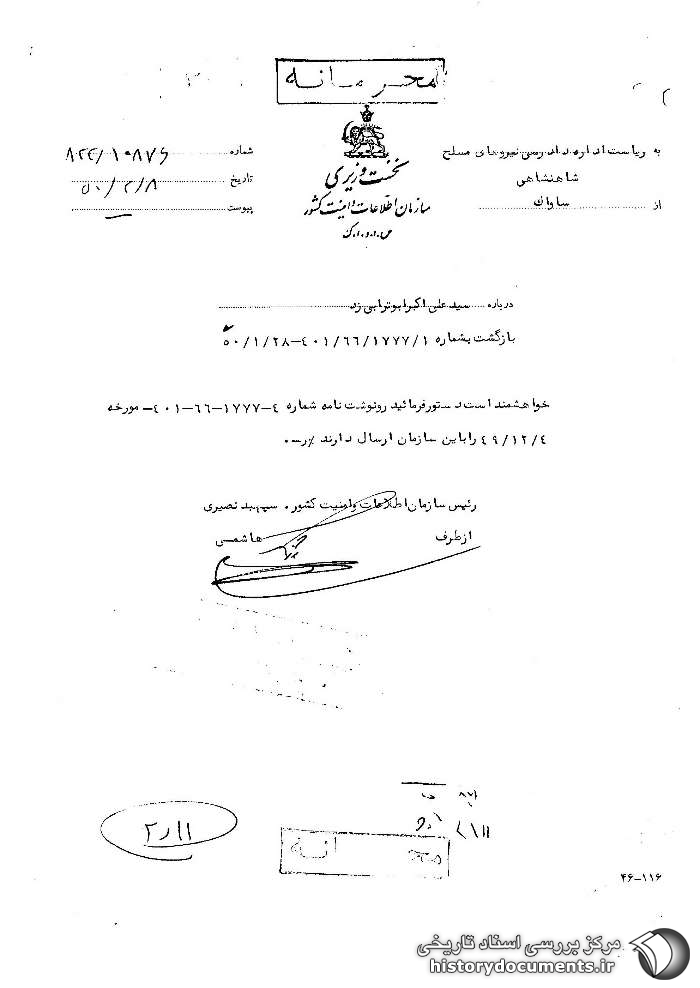 محرمانه
به ریاست اداره دادرسی نیروهای مسلح
شاهنشاهی
از ساواک
نخست وزیری
سازمان اطلاعات و امنیت کشور
س.ا.و.ا.ک
شماره ۸۲۲/۱۰۸۷۶
تاریخ ۵۰/۲/۸
پیوست
درباره سید علی اکبر ابوترابی زد
بازگشت بشماره ۴۰۱/۶۶/۱۷۷۷/۱-۵۰/۱/۲۸
خواهشمند است دستور فرمائید رونوشت نامه شماره ۴-۱۷۷۷-۶۶-۴۰۱- مورخه
۴۹/۱۲/۴ را باین سازمان ارسال دارند
رئیس سازمان اطلاعات و امنیت کشور . سپهبد نصیری
از طرف هاشمی
۲/۱۱
۴۶-۱۱۶
مرکز بررسی اسناد تاریخی
historydocuments.ir